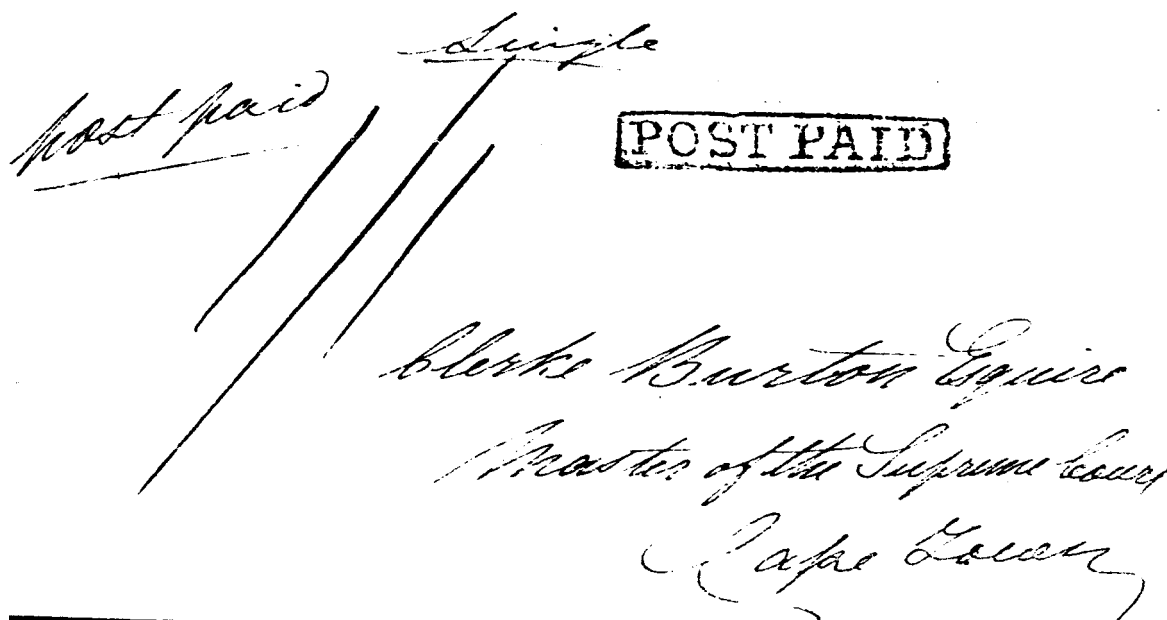 Single
post paid
POST PAID
Clerke Burton Esquire
Master of the Supreme Court
Cape Town